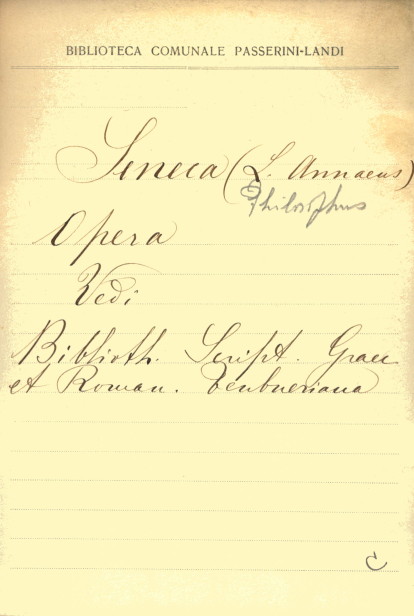 BIBLIOTECA COMUNALE PASSERINI-LANDI
Seneca (L. Annaeus)
Philosophus
Opera
Vedi
Biblioth. Script. Graec
et Roman. Teubneriana
C